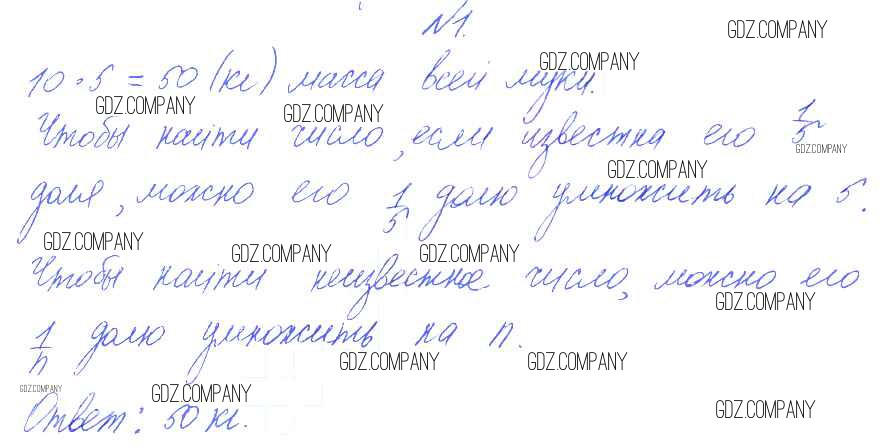 №1.
GDZ.COMPANY
10·5 = 50 (кг) масса всей муки.
GDZ.COMPANY
GDZ.COMPANY
GDZ.COMPANY
Чтобы найти число, если известна его 1/5
GDZ.COMPANY
GDZ.COMPANY
доля, можно его 1/5 долю умножить на 5.
GDZ.COMPANY
GDZ.COMPANY
GDZ.COMPANY
Чтобы найти неизвестное число, можно его
GDZ.COMPANY
1/n долю умножить на n.
GDZ.COMPANY
GDZ.COMPANY
GDZ.COMPANY
GDZ.COMPANY
GDZ.COMPANY
Ответ: 50 кг.